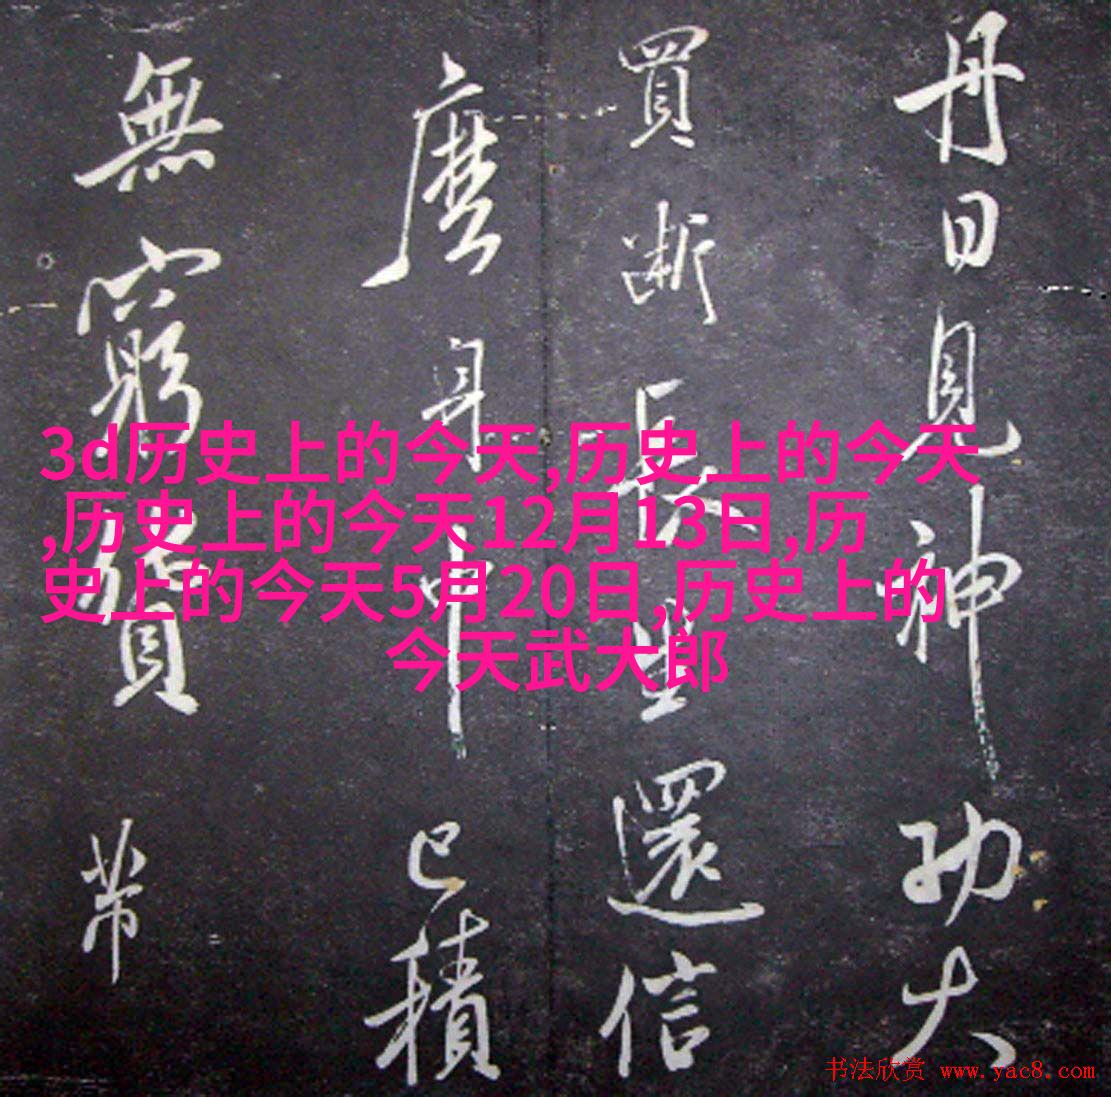 3d历史上的今天,历史上的今天
,历史上的今天12月13日,历
史上的今天5月20日,历史上的
今天武大郎
丹日見神功大
買断長生還信
身中已積
無窮
芾
书法欣赏 www.yac8.com